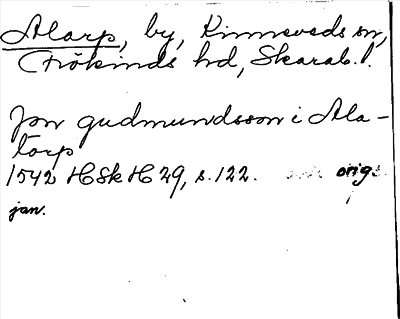 Alarp, by, Kinneveds sn,
Frökinds hd, Skarab. l.
Jon gudmundsson i Ala-
torp
1542 HSkH 29, s. 122. orig.
jan.